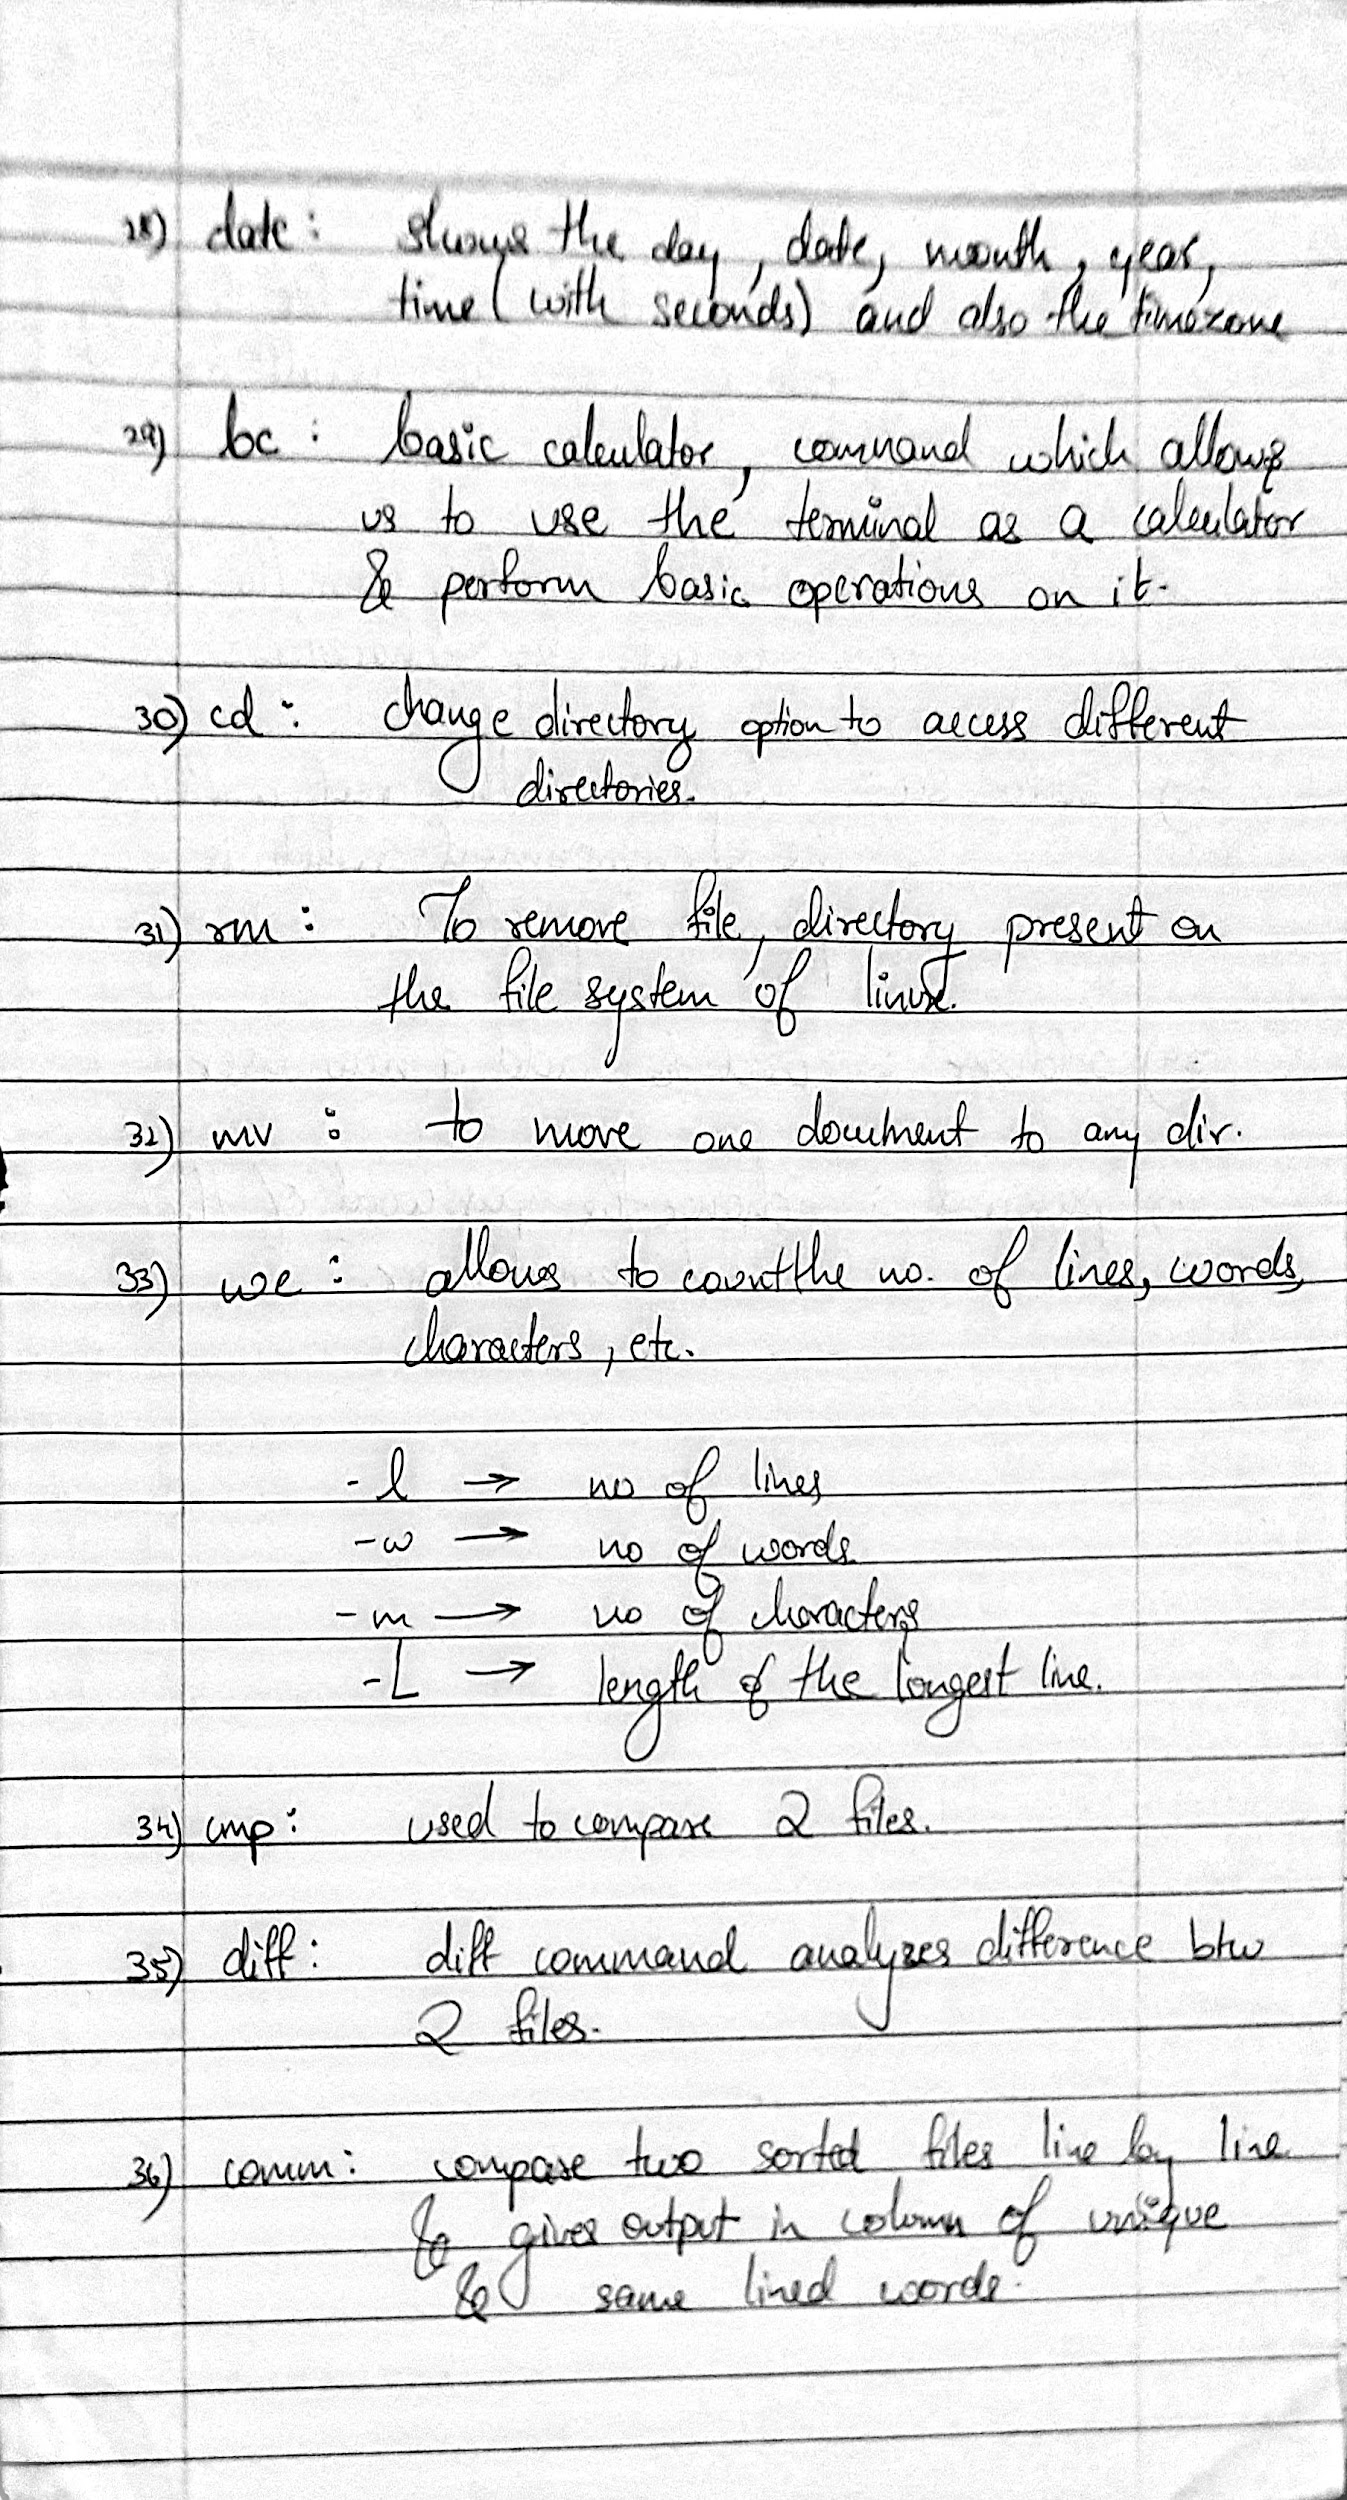 28) date : shows the day, date, month, year,
time (with seconds) and also the timezone
29) bc : basic calculator, command which allows
us to use the terminal as a calculator
& perform basic operations on it.
30) cd : change directory option to access different
directories.
31) rm : To remove file, directory present on
the file system of linux.
32) mv : to move one document to any dir.
33) wc : allows to count the no. of lines, words,
characters, etc.
-l → no of lines
-w → no of words
-m → no of characters
-L → length of the longest line.
34) cmp : used to compare 2 files.
35) diff : diff command analyzes difference btw
2 files.
36) comm : compare two sorted files line by line
& gives output in column of unique
& same lined words.